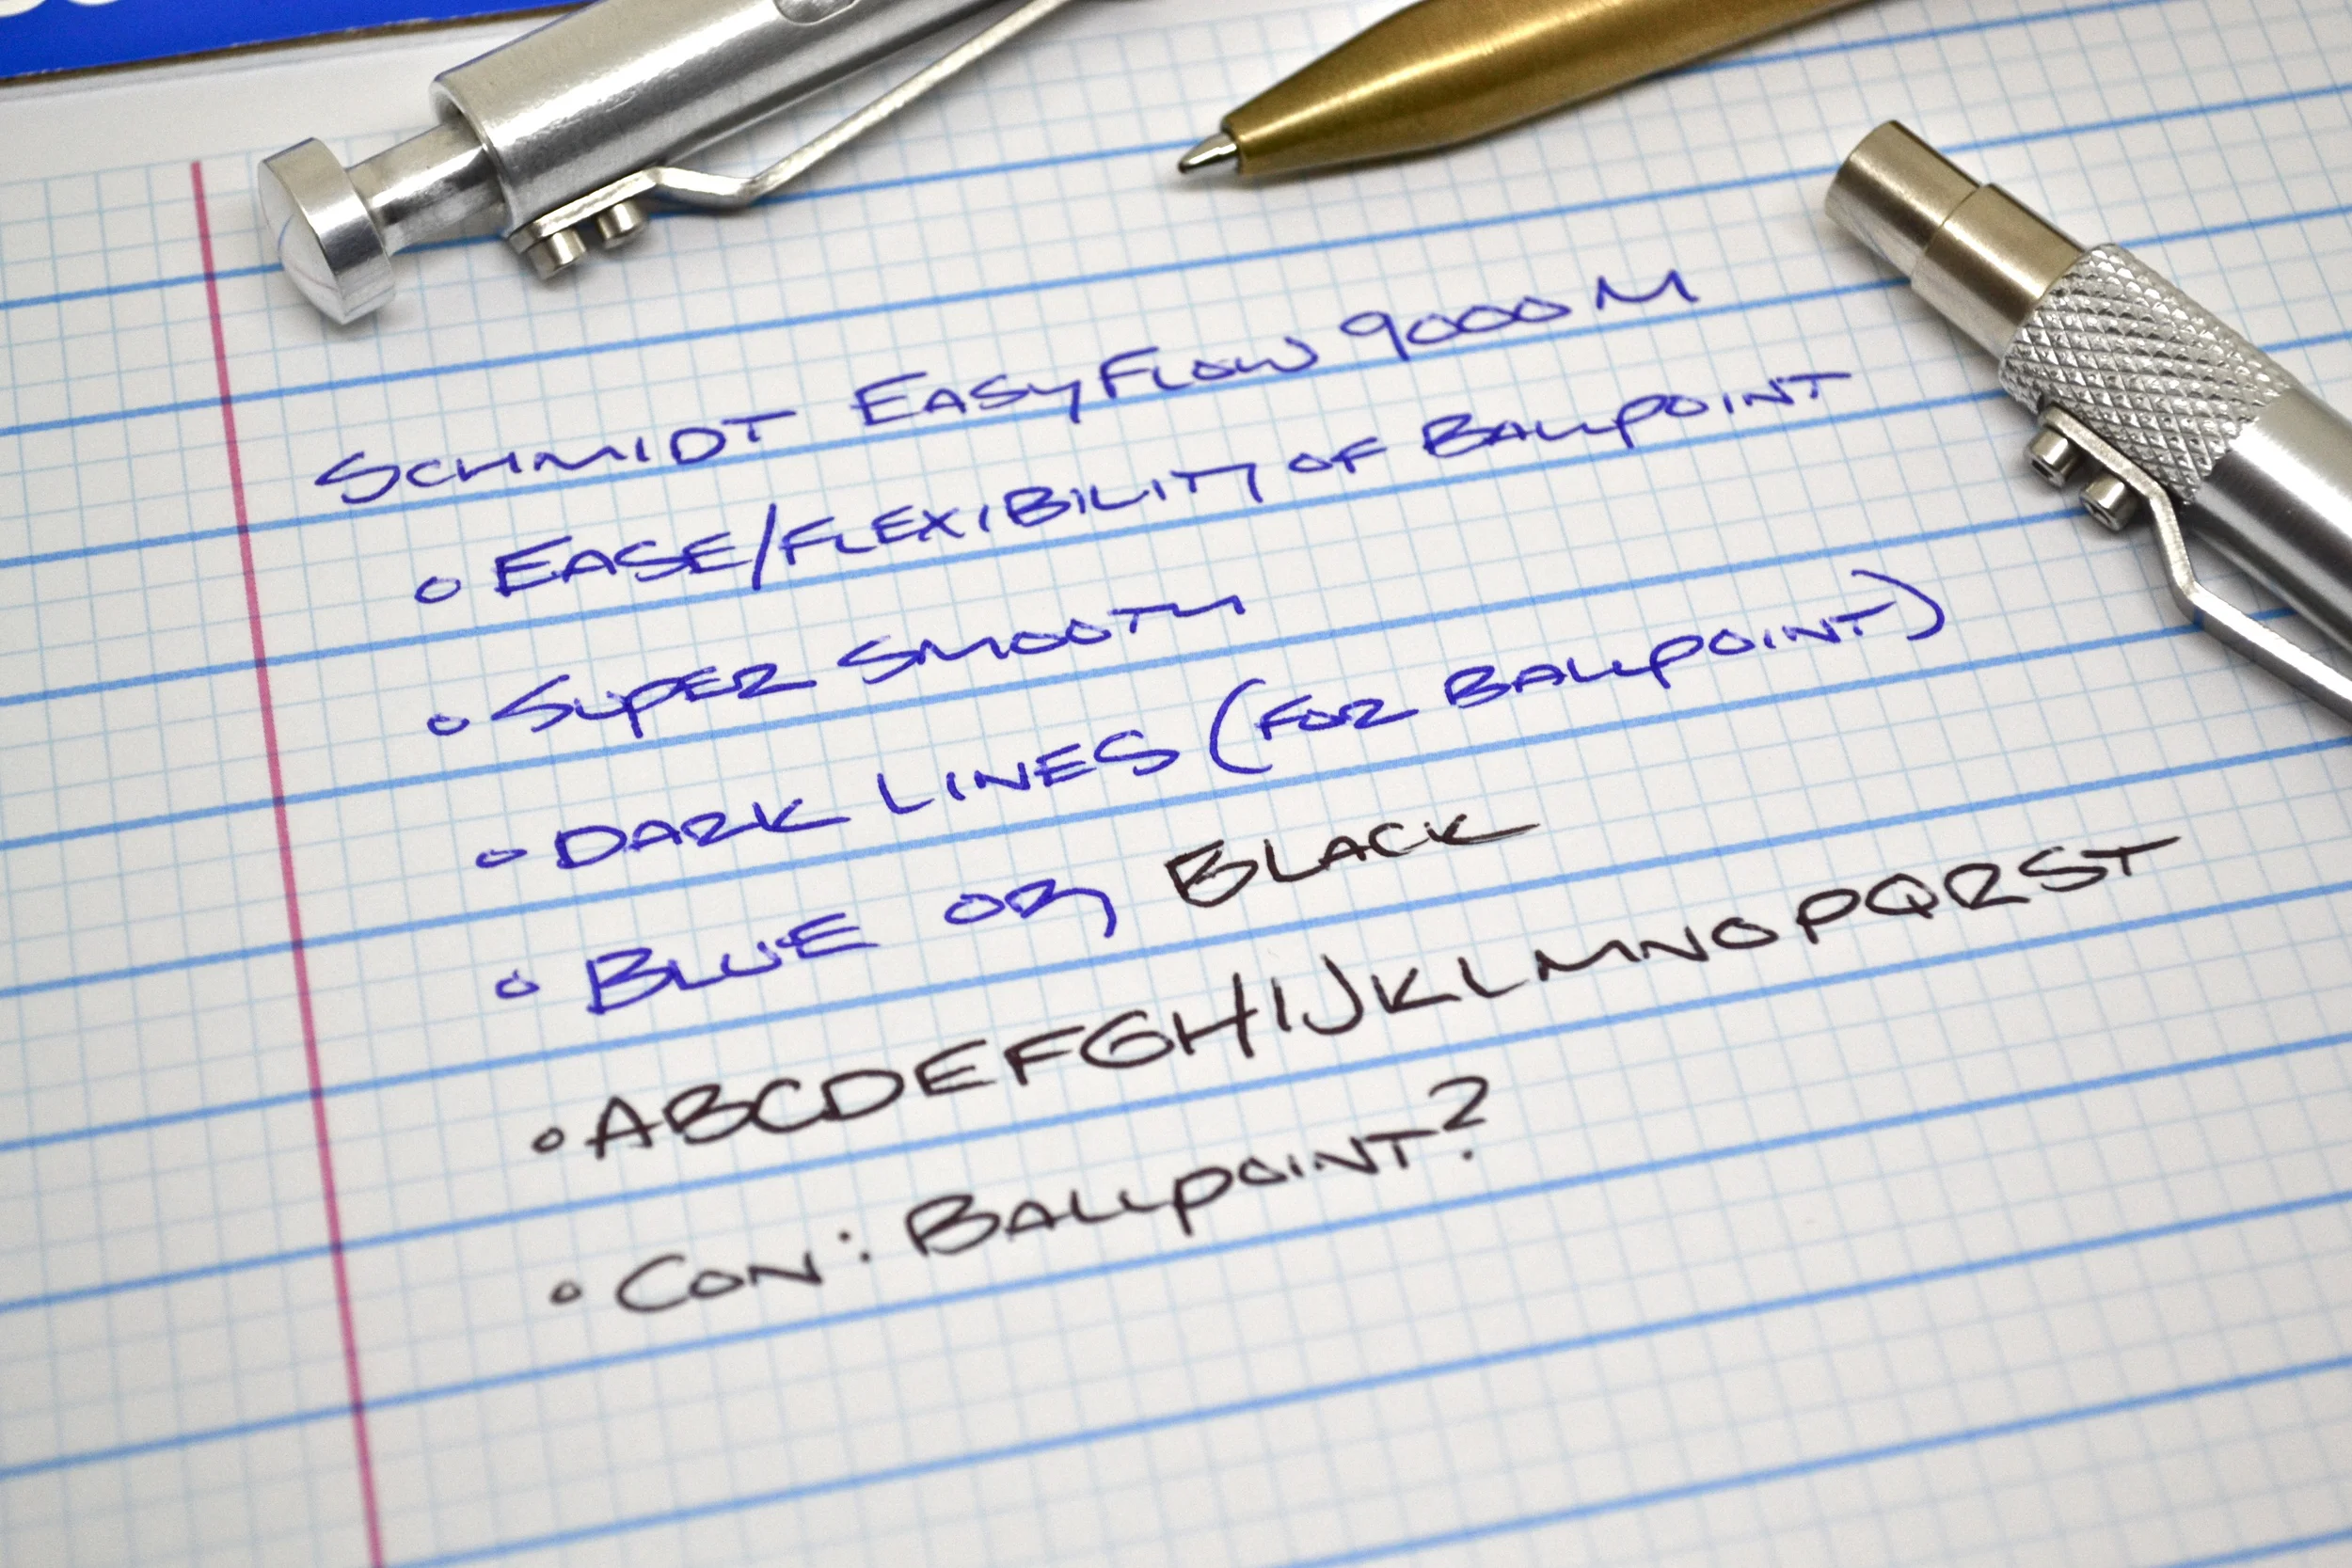 SCHMIDT EASYFLOW 9000 M
◦ EASE/FLEXIBILITY OF BALLPOINT
◦ SUPER SMOOTH
◦ DARK LINES (FOR BALLPOINT)
◦ BLUE OR BLACK
◦ ABCDEFGHIJKLMNOPQRST
◦ CON: BALLPOINT?